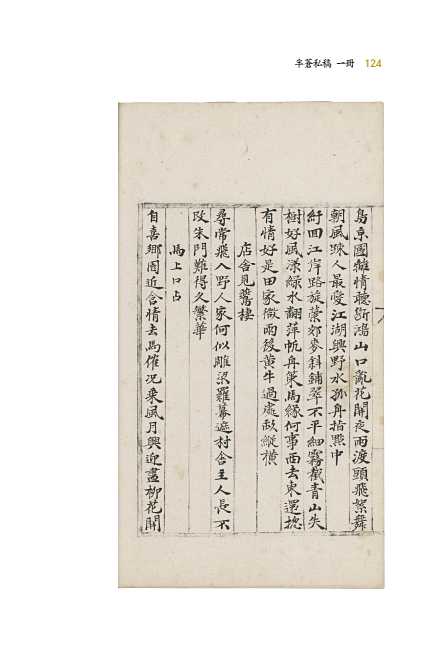 半蒼私稿 一冊 124
島京國離情聽斷鴻山口亂花開夜雨渡頭飛絮舞
朝風踈人最愛江湖興野水孤舟指點中
紆回江岸路旋縈郊麥斜鋪翠不平細霧截青山失
樹好風漾綠水翻萍帆舟策馬緣何事西去東還揔
有情好是田家微雨後黃牛過處畝縱橫
店舍見舊棲
尋常飛入野人家何似雕梁羅幕遮村舍主人長不
改朱門難得久繁華
馬上口占
自喜鄉園近含情去馬催況乘風月興迎盡柳花開